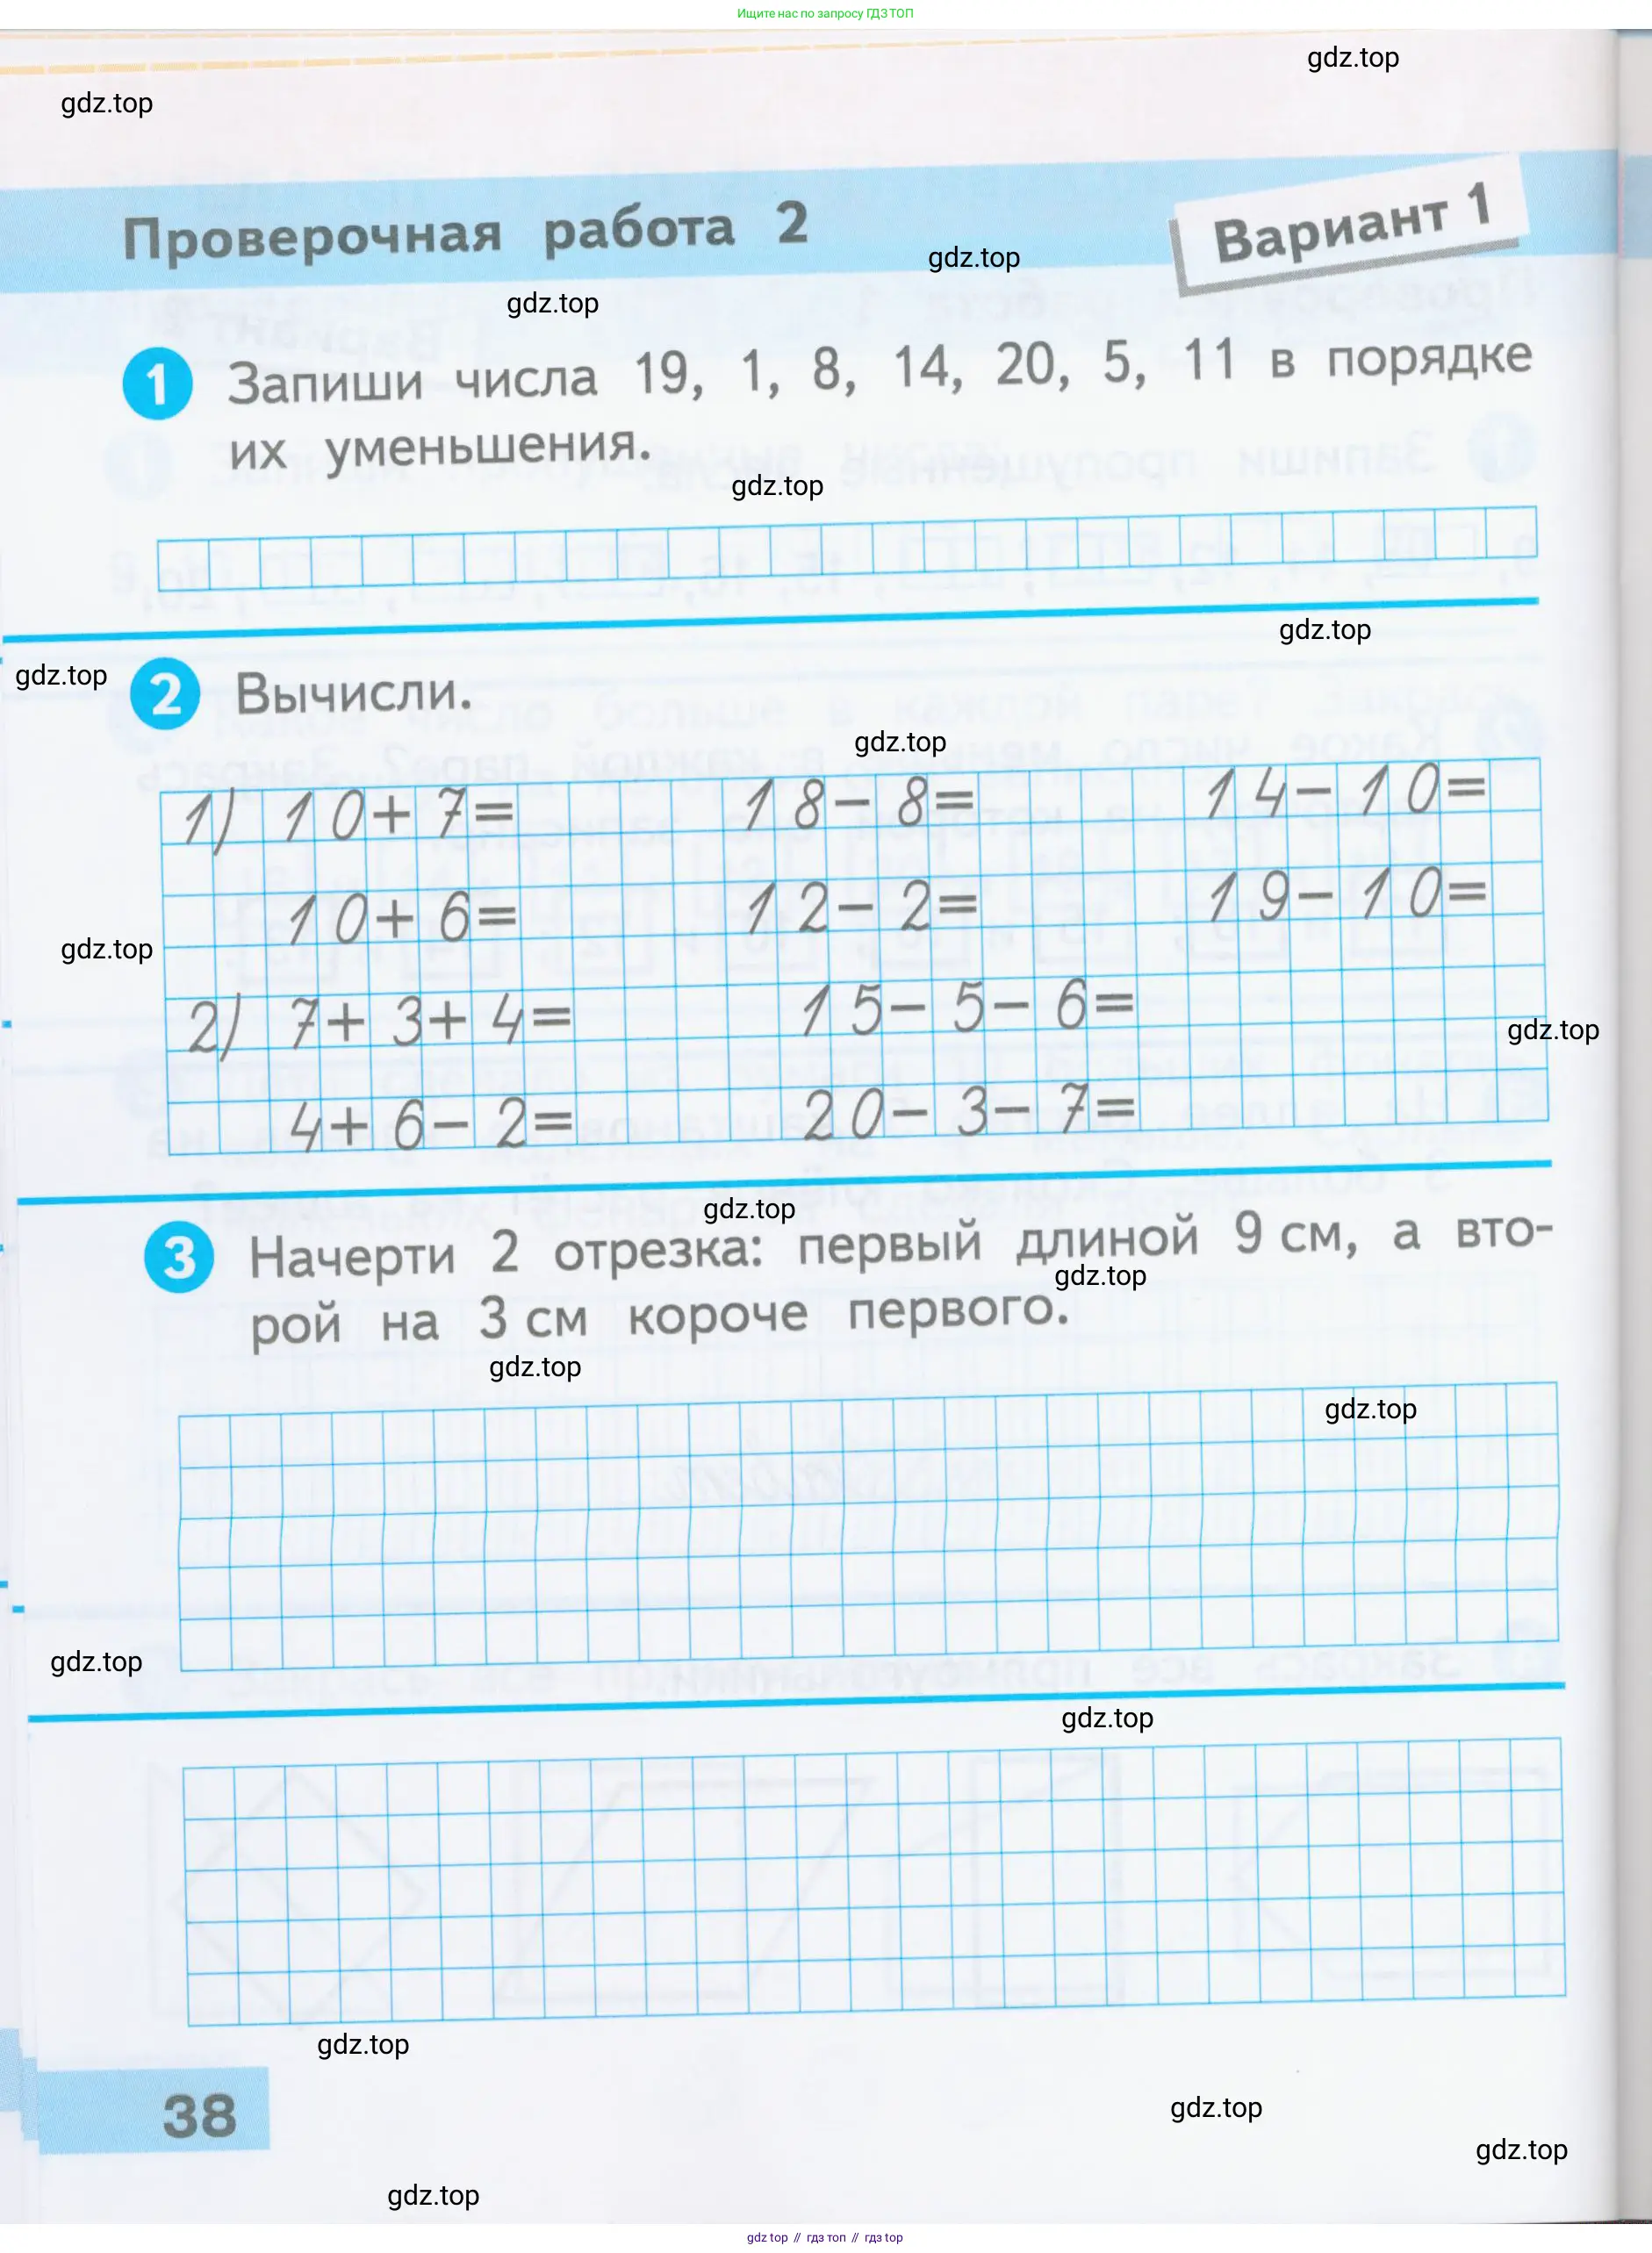 Ищите нас по запросу ГДЗ ТОП
gdz.top
gdz.top
Проверочная работа 2
Вариант 1
gdz.top
gdz.top
1 Запиши числа 19, 1, 8, 14, 20, 5, 11 в порядке
их уменьшения.
gdz.top
gdz.top
gdz.top
2 Вычисли.
gdz.top
1) 10+7= 18-8= 14-10=
10+6= 12-2= 19-10=
gdz.top
2) 7+3+4= 15-5-6=
gdz.top
4+6-2= 20-3-7=
gdz.top
3 Начерти 2 отрезка: первый длиной 9 см, а вто-
gdz.top
рой на 3 см короче первого.
gdz.top
gdz.top
gdz.top
gdz.top
gdz.top
38
gdz.top
gdz.top
gdz.top
gdz top // гдз топ // gdz top